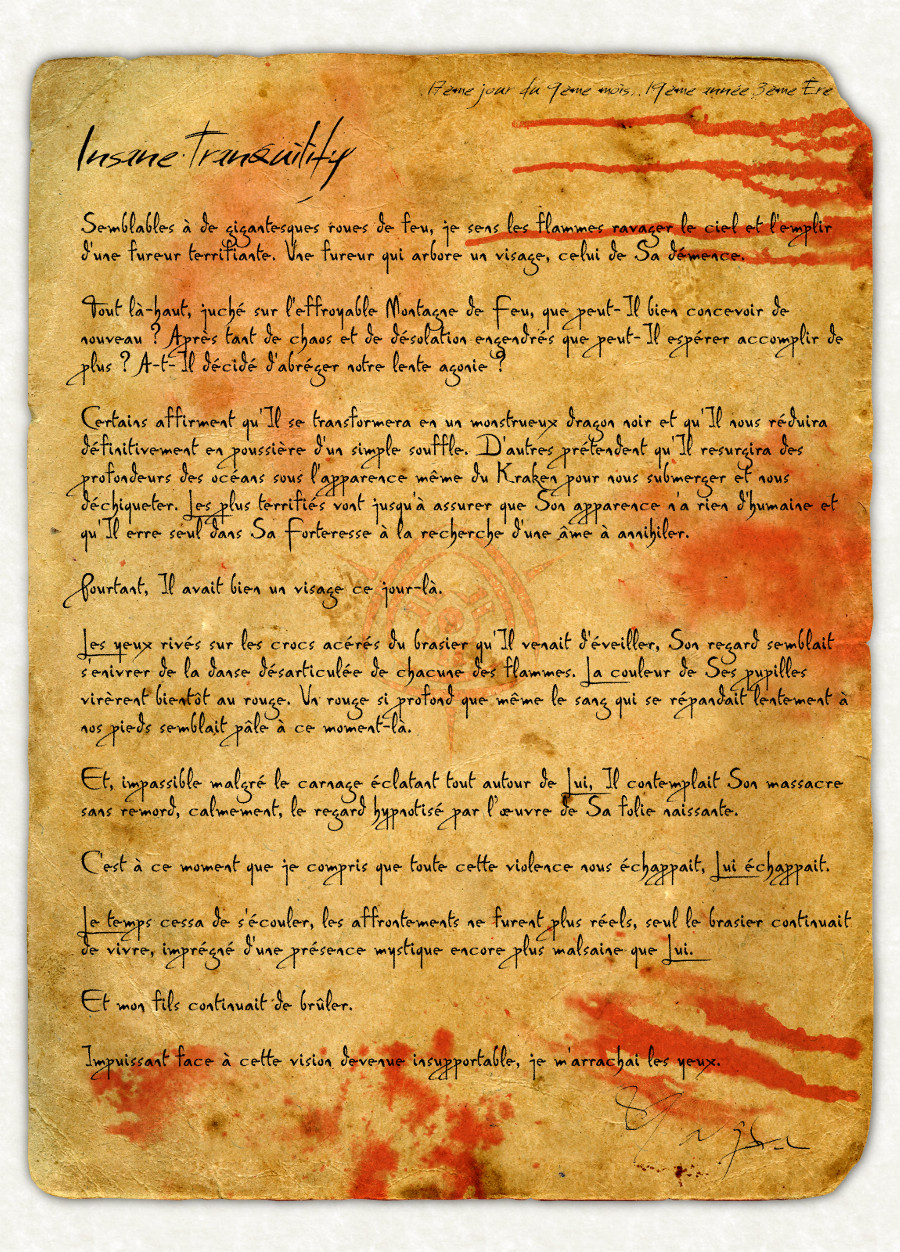 (17ème jour du 9ème mois), 19ème année 3ème Ère
Insane Tranquility
Semblables à de gigantesques roues de feu, je sens les flammes ravager le ciel et l'emplir
d'une fureur terrifiante. Une fureur qui arbore un visage, celui de Sa démence.
Tout là-haut, juché sur l'effroyable Montagne de Feu, que peut-Il bien concevoir de
nouveau ? Après tant de chaos et de désolation engendrés que peut-Il espérer accomplir de
plus ? A-t-Il décidé d'abréger notre lente agonie ?
Certains affirment qu'Il se transformera en un monstrueux dragon noir et qu'Il nous réduira
définitivement en poussière d'un simple souffle. D'autres prétendent qu'Il resurgira des
profondeurs des océans sous l'apparence même du Kraken pour nous submerger et nous
déchiqueter. Les plus terrifiés vont jusqu'à assurer que Son apparence n'a rien d'humaine et
qu'Il erre seul dans Sa Forteresse à la recherche d'une âme à annihiler.
Pourtant, Il avait bien un visage ce jour-là.
Les yeux rivés sur les crocs acérés du brasier qu'Il venait d'éveiller, Son regard semblait
s'enivrer de la danse désarticulée de chacune des flammes. La couleur de Ses pupilles
virèrent bientôt au rouge. Un rouge si profond que même le sang qui se répandait lentement à
nos pieds semblait pâle à ce moment-là.
Et, impassible malgré le carnage éclatant tout autour de Lui, Il contemplait Son massacre
sans remord, calmement, le regard hypnotisé par l'œuvre de Sa folie naissante.
C'est à ce moment que je compris que toute cette violence nous échappait, Lui échappait.
Le temps cessa de s'écouler, les affrontements ne furent plus réels, seul le brasier continuait
de vivre, imprégné d'une présence mystique encore plus malsaine que Lui.
Et mon fils continuait de brûler.
Impuissant face à cette vision devenue insupportable, je m'arrachai les yeux.